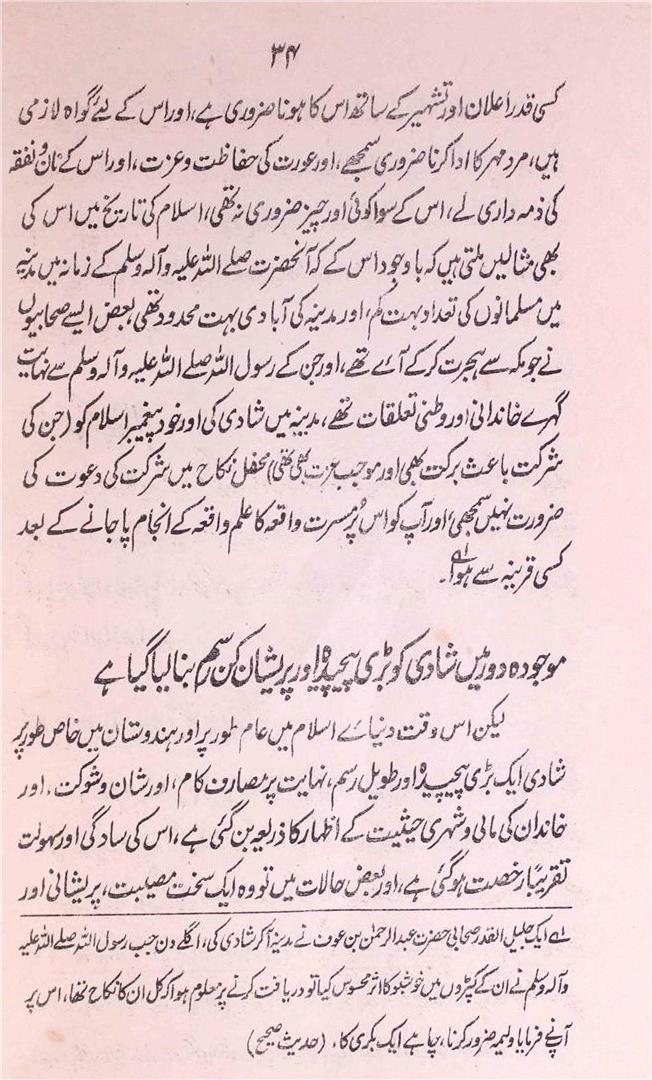 ۳۴
کسی قدر اعلان اور تشہیر کے ساتھ اس کا ہونا ضروری ہے، اور اس کے لئے گواہ لازمی
ہیں، مرد مہر کا ادا کرنا ضروری سمجھے، اور عورت کی حفاظت و عزت، اور اس کے نان و نفقہ
کی ذمہ داری لے، اس کے سوا کوئی اور چیز ضروری نہ تھی، اسلام کی تاریخ میں اس کی
بھی مثالیں ملتی ہیں کہ باوجود اس کے کہ آنحضرت صلے اللہ علیہ وآلہ وسلم کے زمانہ میں مدینہ
میں مسلمانوں کی تعداد بہت کم، اور مدینہ کی آبادی بہت محدود تھی، بعض ایسے صحابیوں
نے جو مکہ سے ہجرت کر کے آئے تھے، اور جن کے رسول اللہ صلے اللہ علیہ وآلہ وسلم سے نہایت
گہرے خاندانی اور وطنی تعلقات تھے، مدینہ میں شادی کی اور خود پیغمبر اسلام کو (جن کی
شرکت باعث برکت بھی اور موجب عزت بھی تھی) محفل نکاح میں شرکت کی دعوت کی
ضرورت نہیں سمجھی، اور آپ کو اس پُر مسرت واقعہ کا علم واقعہ کے انجام پا جانے کے بعد
کسی قرینہ سے ہوا۔ لہ
موجودہ دور میں شادی کو بڑی پیچیدہ اور پریشان کن رسم بنا لیا گیا ہے
لیکن اس وقت دنیائے اسلام میں عام طور پر اور ہندوستان میں خاص طور پر
شادی ایک بڑی پیچیدہ اور طویل رسم، نہایت پر مصارف کام، اور شان و شوکت، اور
خاندان کی مالی و شہری حیثیت کے اظہار کا ذریعہ بن گئی ہے، اس کی سادگی اور سہولت
تقریباً رخصت ہو گئی ہے، اور بعض حالات میں تو وہ ایک سخت مصیبت، پریشانی اور
لہ ایک جلیل القدر صحابی حضرت عبدالرحمٰن بن عوف نے مدینہ آ کر شادی کی، اگلے دن جب رسول اللہ صلے اللہ علیہ
وآلہ وسلم نے ان کے کپڑوں میں خوشبو کا اثر محسوس کیا تو دریافت کرنے پر معلوم ہوا کہ کل ان کا نکاح تھا، اس پر
آپنے فرمایا ولیمہ ضرور کرنا، چاہے ایک بکری کا۔ (حدیث صحیح)